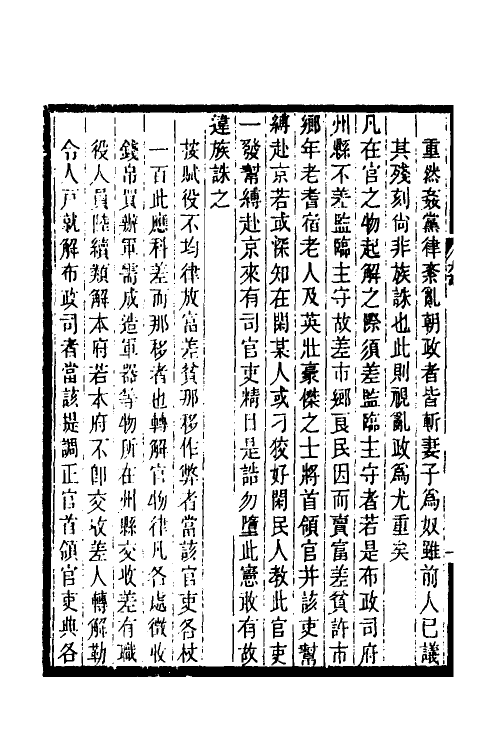 重然姦黨律紊亂朝政者皆斬妻子為奴雖前人已議
其殘刻尚非族誅也此則視亂政為尤重矣
凡在官之物起解之際須差監臨主守者若是布政司府
州縣不差監臨主守故差市鄉良民因而賣富差貧許市
鄉年老耆宿老人及英壯豪傑之士將首領官并該吏幫
縛赴京若或深知在閑某人或刁狡好閑民人教此官吏
一發幫縛赴京來有司官吏精目是誥勿墮此憲敢有故
違族誅之
按賦役不均律放富差貧那移作弊者當該官吏各杖
一百此應科差而那移者也轉解官物律凡各處徵收
錢帛買辦軍需成造軍器等物所在州縣交收差有職
役人員陸續類解本府若本府不卽交收差人轉解勒
令人戶就解布政司者當該提調正官首領官吏典各